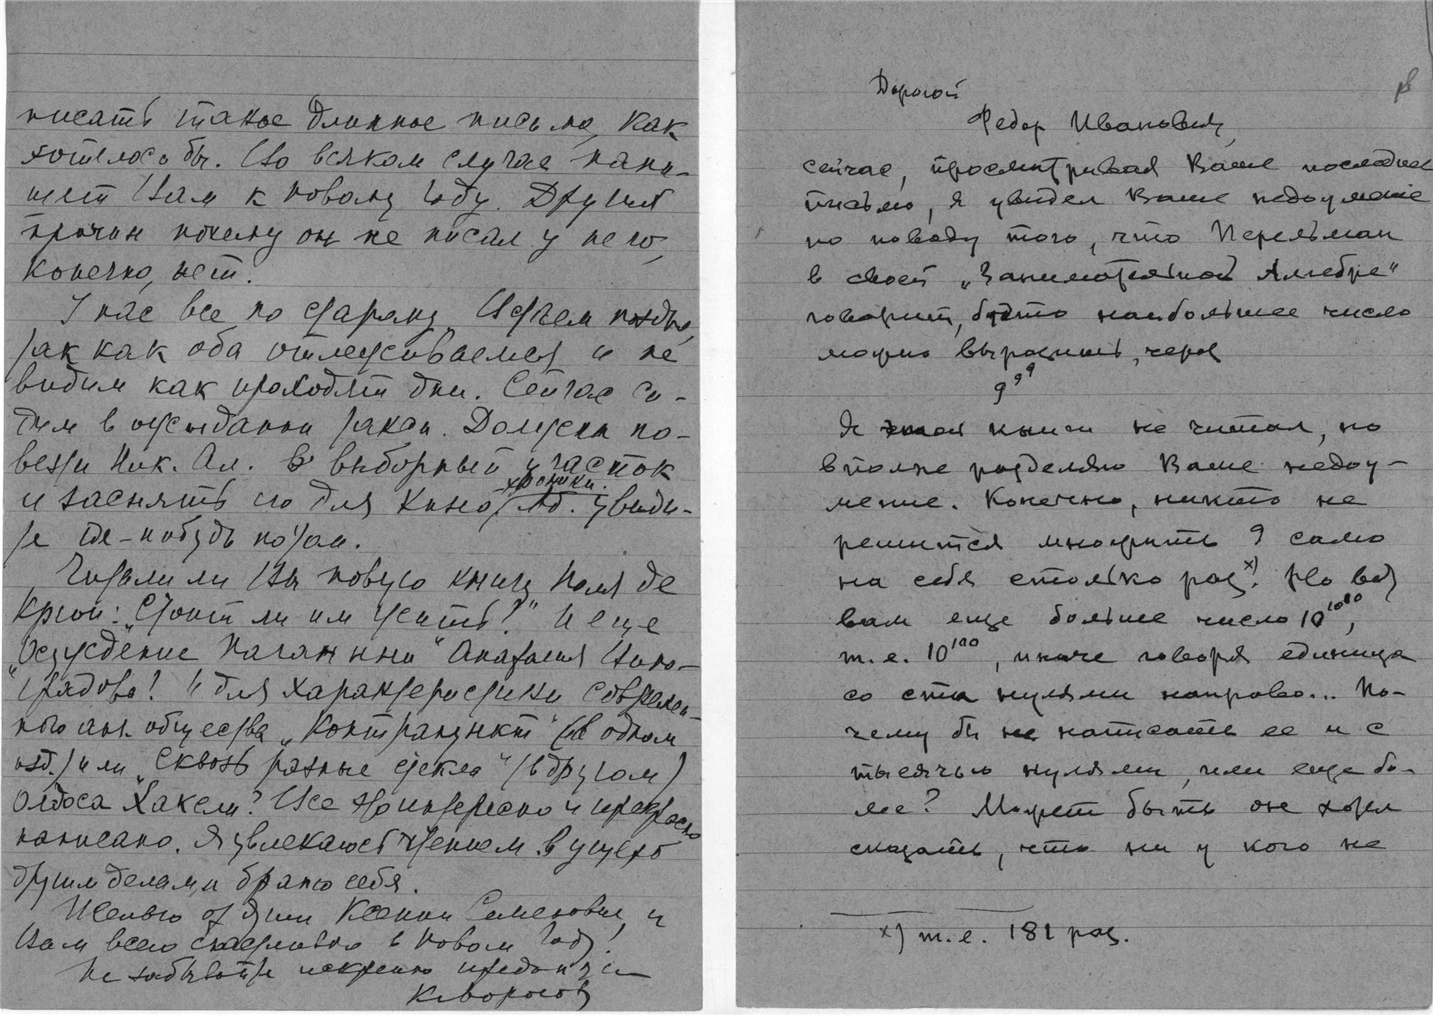 писать такое длинное письмо, как
хотелось бы. Во всяком случае напи-
шет Вам к новому году. Других
причин почему он не писал у него,
конечно, нет.
У нас все по старому. Встаем поздно,
так как оба отлеживаемся и не
видим как проходят дни. Сейчас си-
дим в ожидании такси. Должен по-
везти Ник. Ал. в выборный участок
и заснять его для кино хроники.
увиди-
те где-нибудь потом.
Читали ли Вы новую книгу Поля де
Крюи: "Стоит ли им жить?" И еще
"Осуждение Паганини" Анатолия Вино-
градова? И для характеристики современ-
ного анг. общества "Контрапункт" (в одном
изд.) или "Сквозь разные стекла" (в другом)
Олдоса Хаксли? Все это интересно и прекрасно
написано. Я увлекаюсь чтением в ущерб
другим делам и браню себя.
Желаю от души Ксении Семеновне и
Вам всего счастливого в Новом Году.
Не забывайте искренно преданную
КМорозов
Дорогой
Федор Иванович,
сейчас, просматривая Ваше последнее
письмо, я увидел Ваше недоумение
по поводу того, что Перельман
в своей „Занимательной Алгебре"
говорит, будто наибольшее число
можно выразить, через
9⁹⁹
Я книги не читал, но
вполне разделяю Ваше недоу-
мение. Конечно, никто не
решится множить 9 само
на себя столько раз ˣ⁾. Но вот
вам еще большее число 10¹⁰¹⁰,
т.е. 10¹⁰⁰, иначе говоря единица
со ста нулями направо... По-
чему бы не написать ее и с
тысячью нулями, или еще бо-
лее? Может быть он хотел
сказать, что ни у кого не
х) т.е. 181 раз.